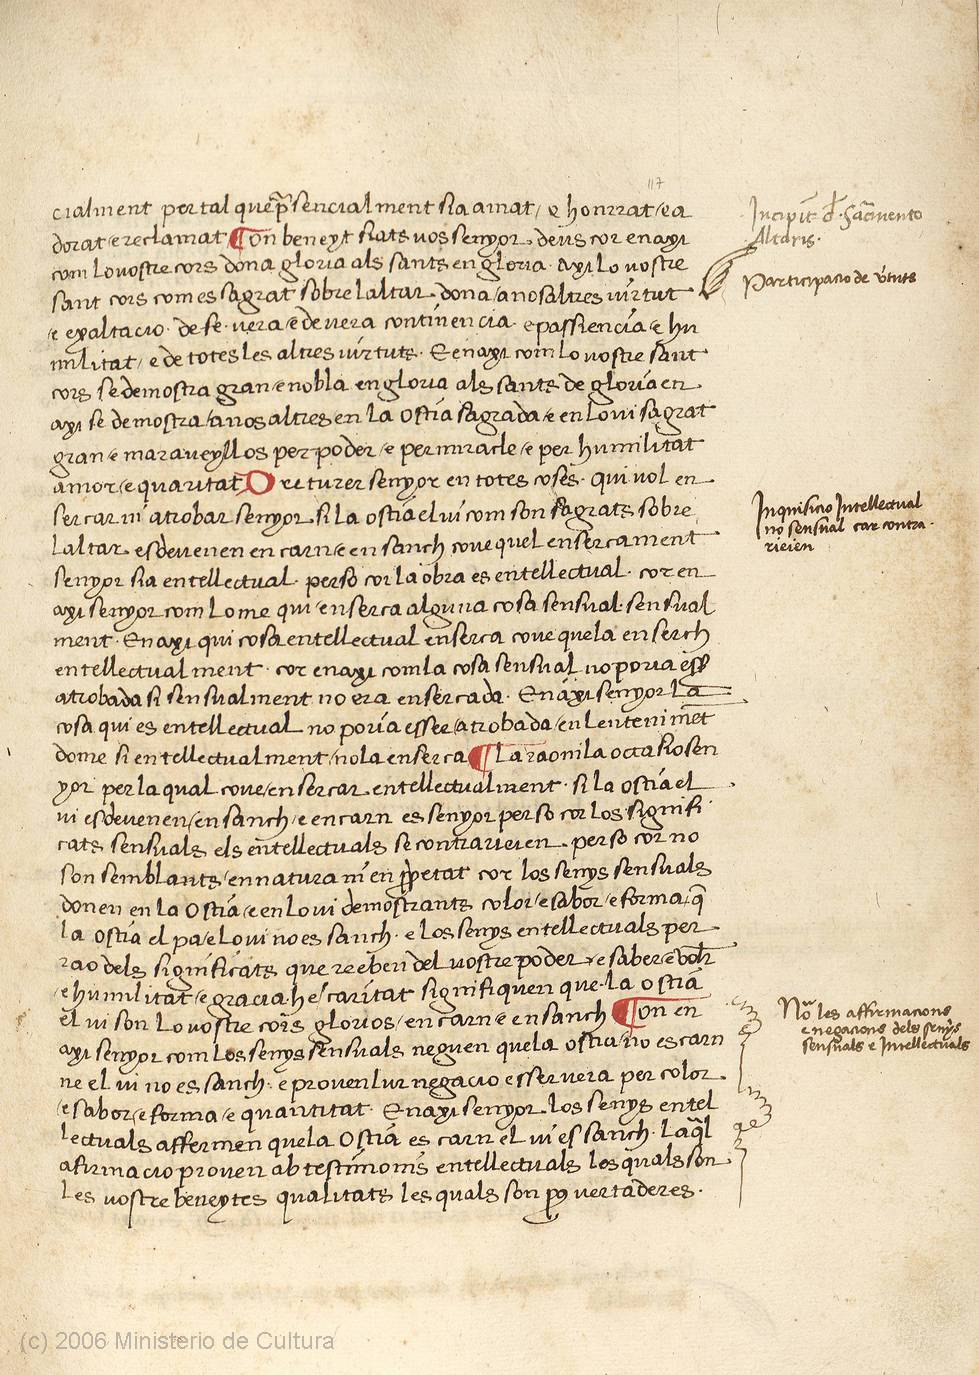 117
cialment per tal que p̃sencialment sia amat / e honrrat / e a
dorat e reclamat ¶ On beneyt siats vos senyor deus cor en axi
com lo vostre cors dona gloria als sants en gloria · axi lo vostre
sant cors com es sagrat sobre laltar dona / a nosaltres virtut
e exaltacio · de fe · vera / e de vera continencia · e passiencia / e hu
militat / e de totes les altres virtuts · E en axi com lo vostre sant
cors se demostra gran / e nobla en gloria als sants de gloria en
axi se demostra / a nos altres en la ostia sagrada / e en lo vi sagrat
gran e maraveyllos per poder / e per miracle / e per humilitat
amor / e quaritat O creturer senyor en totes coses · qui vol en
sercar ni atrobar senyor si la ostia el vi com son sagrats sobre
laltar esdevenen en carn / e en sanch cove quel ensercament
senyor sia entellectual · perso cor la obra es entellectual · cor en
axi senyor com lome qui enserca alguna cosa sensual sensual
ment · En axi qui cosa entellectual enserca cove que la enserch
entellectualment · cor en axi com la cosa sensual no poria ess̃
atrobada si sensualment no era ensercada · En axi senyor la
cosa qui es entellectual no poria esser / atrobada / en lentenimẽt
dome si entellectualment / no la enserca ¶ La rao ni la occasio sen
yor per la qual cove / ensercar entellectualment · si la ostia el
vi esdevenen / en sanch / e en carn es senyor perso cor los signifi
cats sensuals els entellectuals se contrarieien · perso cor no
son semblants / en natura ni en p̃pietat cor los senys sensuals
donen en la ostia / e en lo vi demostrants color / e sabor / e forma / q̃
la ostia el pa / e lo vi no es sanch · e los senys entellectuals per
rao dels significats que reeben del vostre poder / e saber / e volr̃
/ e humilitat / e gracia · he / caritat signifiquen que la ostia
el vi son lo vostre cors glorios / en carn e en sanch ¶ On en
axi senyor com los senys sensuals neguen que la ostia / no es carn
ne el vi no es sanch · e proven lur negacio esser vera per color
/ e sabor / e forma / e quantitat · En axi senyor los senys entel
lectuals affermen que la ostia es carn el vi es sanch · la q̃l
afirmacio proven ab testimonis entellectuals los quals son
les vostre beneytes qualitats les quals son vertaderes ·
Incipit d̃ Sacr̃mento
Altaris ·
Participacio de v̓tuts
Inquisicio Intellectual
no sensual car contra
rieien
Noᵃ les affirmacions
e negacions dels senys
sensuals e Intellectuals
(c) 2006 Ministerio de Cultura